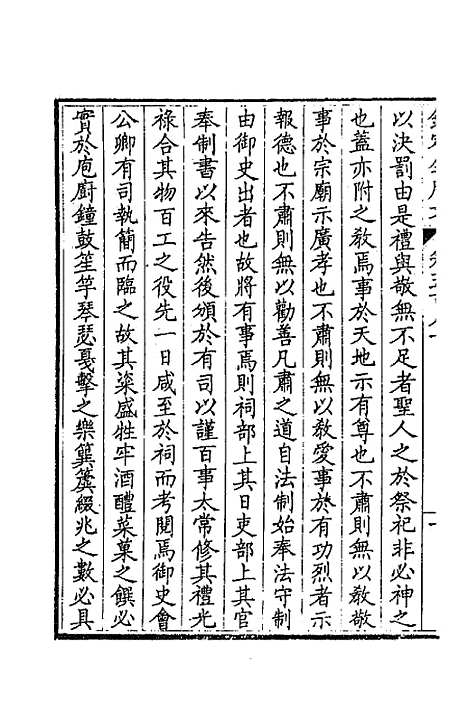 以決罰由是禮與敬無不足者聖人之於祭祀非必神之
也蓋亦附之教焉事於天地示有尊也不肅則無以教敬
事於宗廟示廣孝也不肅則無以教愛事於有功烈者示
報德也不肅則無以勸善凡肅之道自法制始奉法守制
由御史出者也故將有事焉則祠部上其日吏部上其官
奉制書以來告然後頒於有司以謹百事太常修其禮光
祿合其物百工之役先一日咸至於祠而考閱焉御史會
公卿有司執簡而臨之故其粢盛牲牢酒醴菜菓之饌必
實於庖廚鐘鼓笙竽琴瑟戛擊之樂簨簴綴兆之數必具